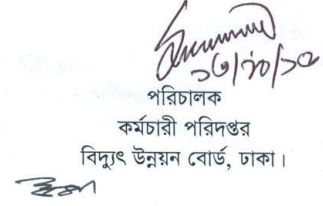 ১৩/১০/১৫
পরিচালক
কর্মচারী পরিদপ্তর
বিদ্যুৎ উন্নয়ন বোর্ড, ঢাকা।